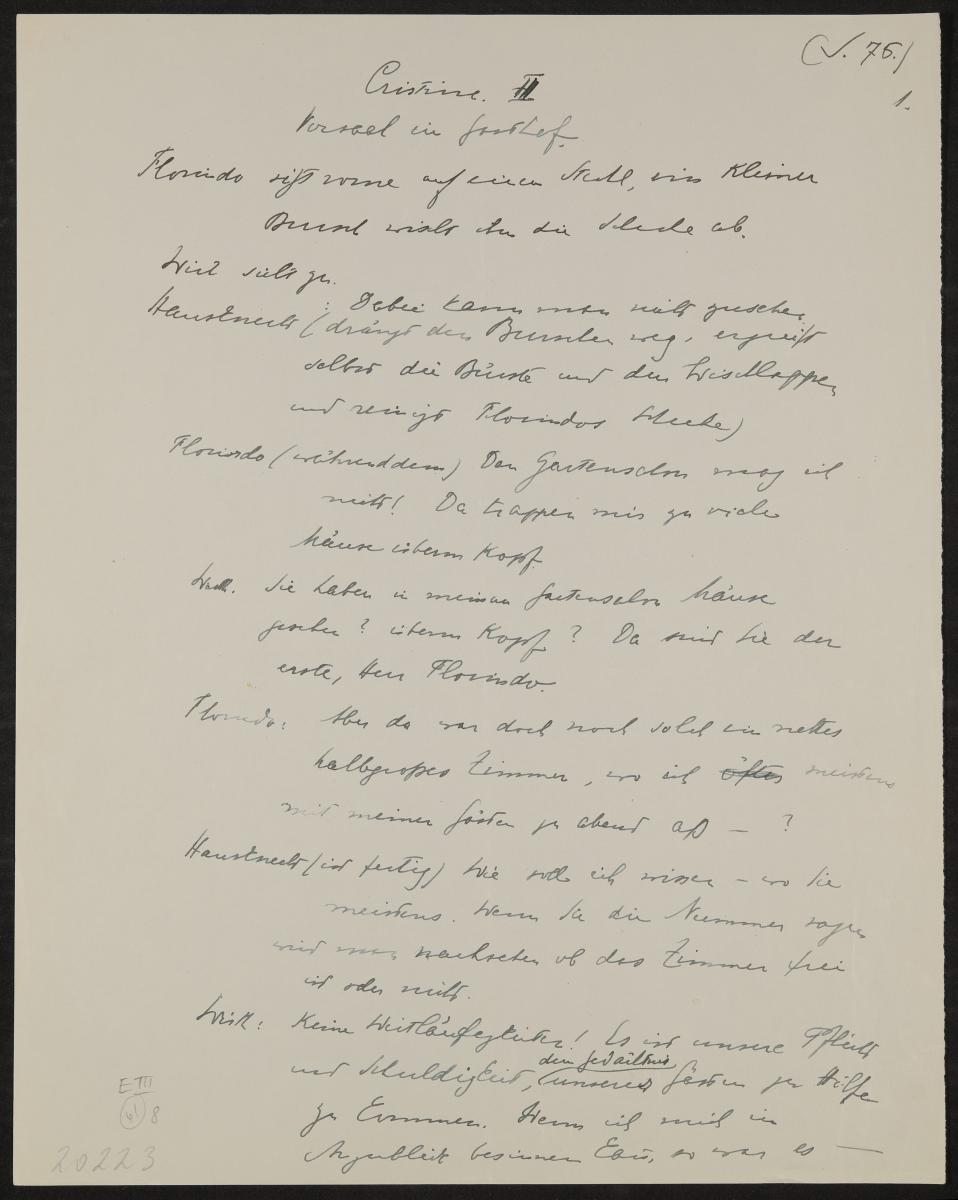 (S. 75.)
1.
Cristine. II
Vorsaal im Gasthof.
Florindo sitzt vorne auf einem Stuhl, ein kleiner
Bursch wischt ihm die Schuhe ab.
Wirt sieht zu.
Hausknecht : Dabei kann man nicht zusehen
(drängt den Burschen weg, ergreift
selber die Bürste und den Wischlappen
und reinigt Florindos Schuhe)
Florindo (währenddem) Den Gartensalon mag ich
nicht! Da trappen mir zu viele
Mäuse überm Kopf.
Wirth. Sie haben in meinem Gartensalon Mäuse
gesehen? überm Kopf? Da sind Sie der
erste, Herr Florindo.
Florindo: Aber da war doch noch solch ein nettes
halbgrosses Zimmer, wo ich öfter meistens
mit meinen Gästen zu abend aß – ?
Hausknecht (ist fertig) Wie soll ich wissen – wo Sie
meistens. Wenn Sie die Nummer sagen
wird man nachsehen ob das Zimmer frei
ist oder nicht.
Wirth: Keine Weitläufigkeiten! Es ist unsere Pflicht
dem Gedächtnis
und Schuldigkeit, unserer Gästen zu Hilfe
zu kommen. Wenn ich mich im
Augenblick besinnen kann, so war es —
E III
61 8
20223